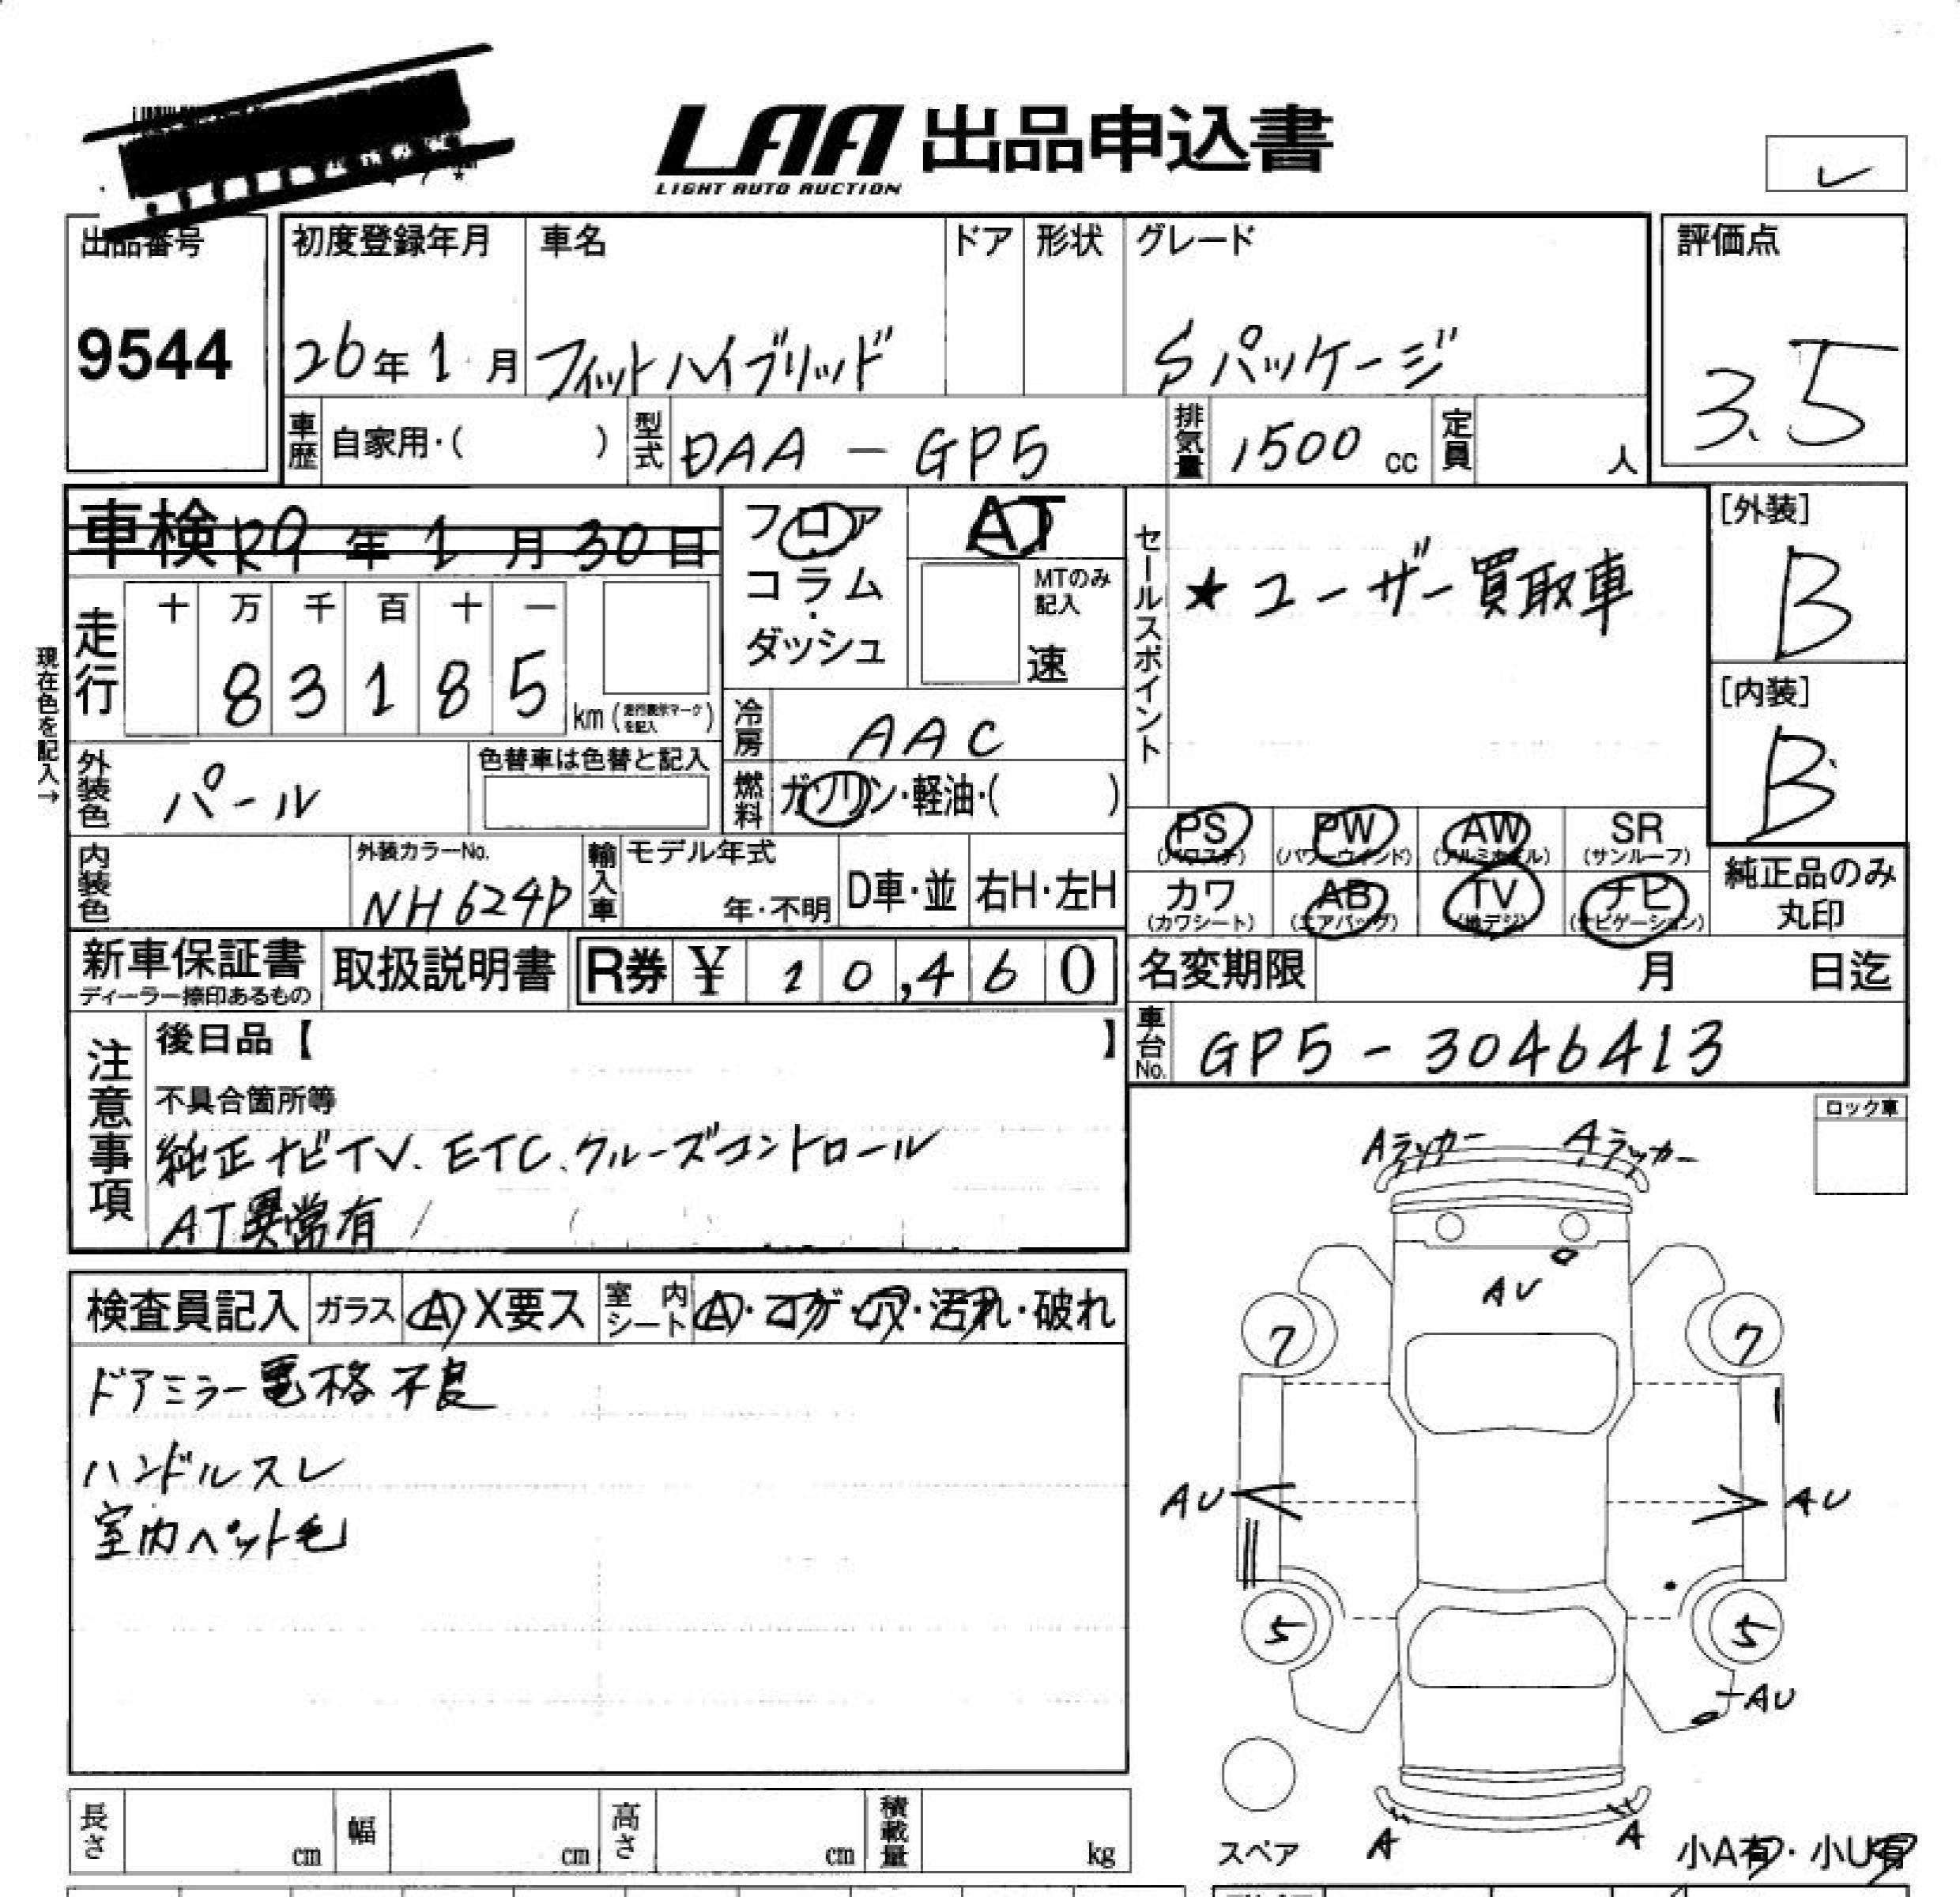 LAA 出品申込書
LIGHT AUTO AUCTION
出品番号 初度登録年月 車名 ドア 形状 グレード 評価点
9544 26年1月 フィットハイブリッド Sパッケージ 3.5
車歴 自家用・( ) 型式 DAA - GP5 排気量 1500 cc 定員 人
車検 R9年1月30日
フロア・コラム・ダッシュ
AT
MTのみ記入
速
セールスポイント
★ユーザー買取車
[外装]
B
[内装]
B
現在色を記入→
走行 十 万 千 百 十 一
8 3 1 8 5 km (走行表示マークを記入)
冷房 AAC
外装色 パール 色替車は色替と記入
燃料 ガソリン・軽油・( )
PS (パワステ) PW (パワーウィンド) AW (アルミホイル) SR (サンルーフ)
カワ (カワシート) AB (エアバッグ) TV (地デジ) ナビ (ナビゲーション)
純正品のみ丸印
内装色 外装カラーNo. NH624P 輸入車 モデル年式 年・不明 D車・並 右H・左H
新車保証書 ディーラー捺印あるもの 取扱説明書 R券 ¥ 10,460
名変期限 月 日迄
車台No. GP5 - 3046413
注意事項
後日品【 】
不具合箇所等
純正ナビTV. ETC. クルーズコントロール
AT異常有
ロック車
Aラッカー Aラッカー
AU
7 7
AU AU
5 5
AU
A A
スペア
小A有・小U有
検査員記入 ガラス A X要ス 室内シート A・コゲ・穴・汚れ・破れ
ドアミラー電格不良
ハンドルスレ
室内ペット毛
長さ cm 幅 cm 高さ cm 積載量 kg